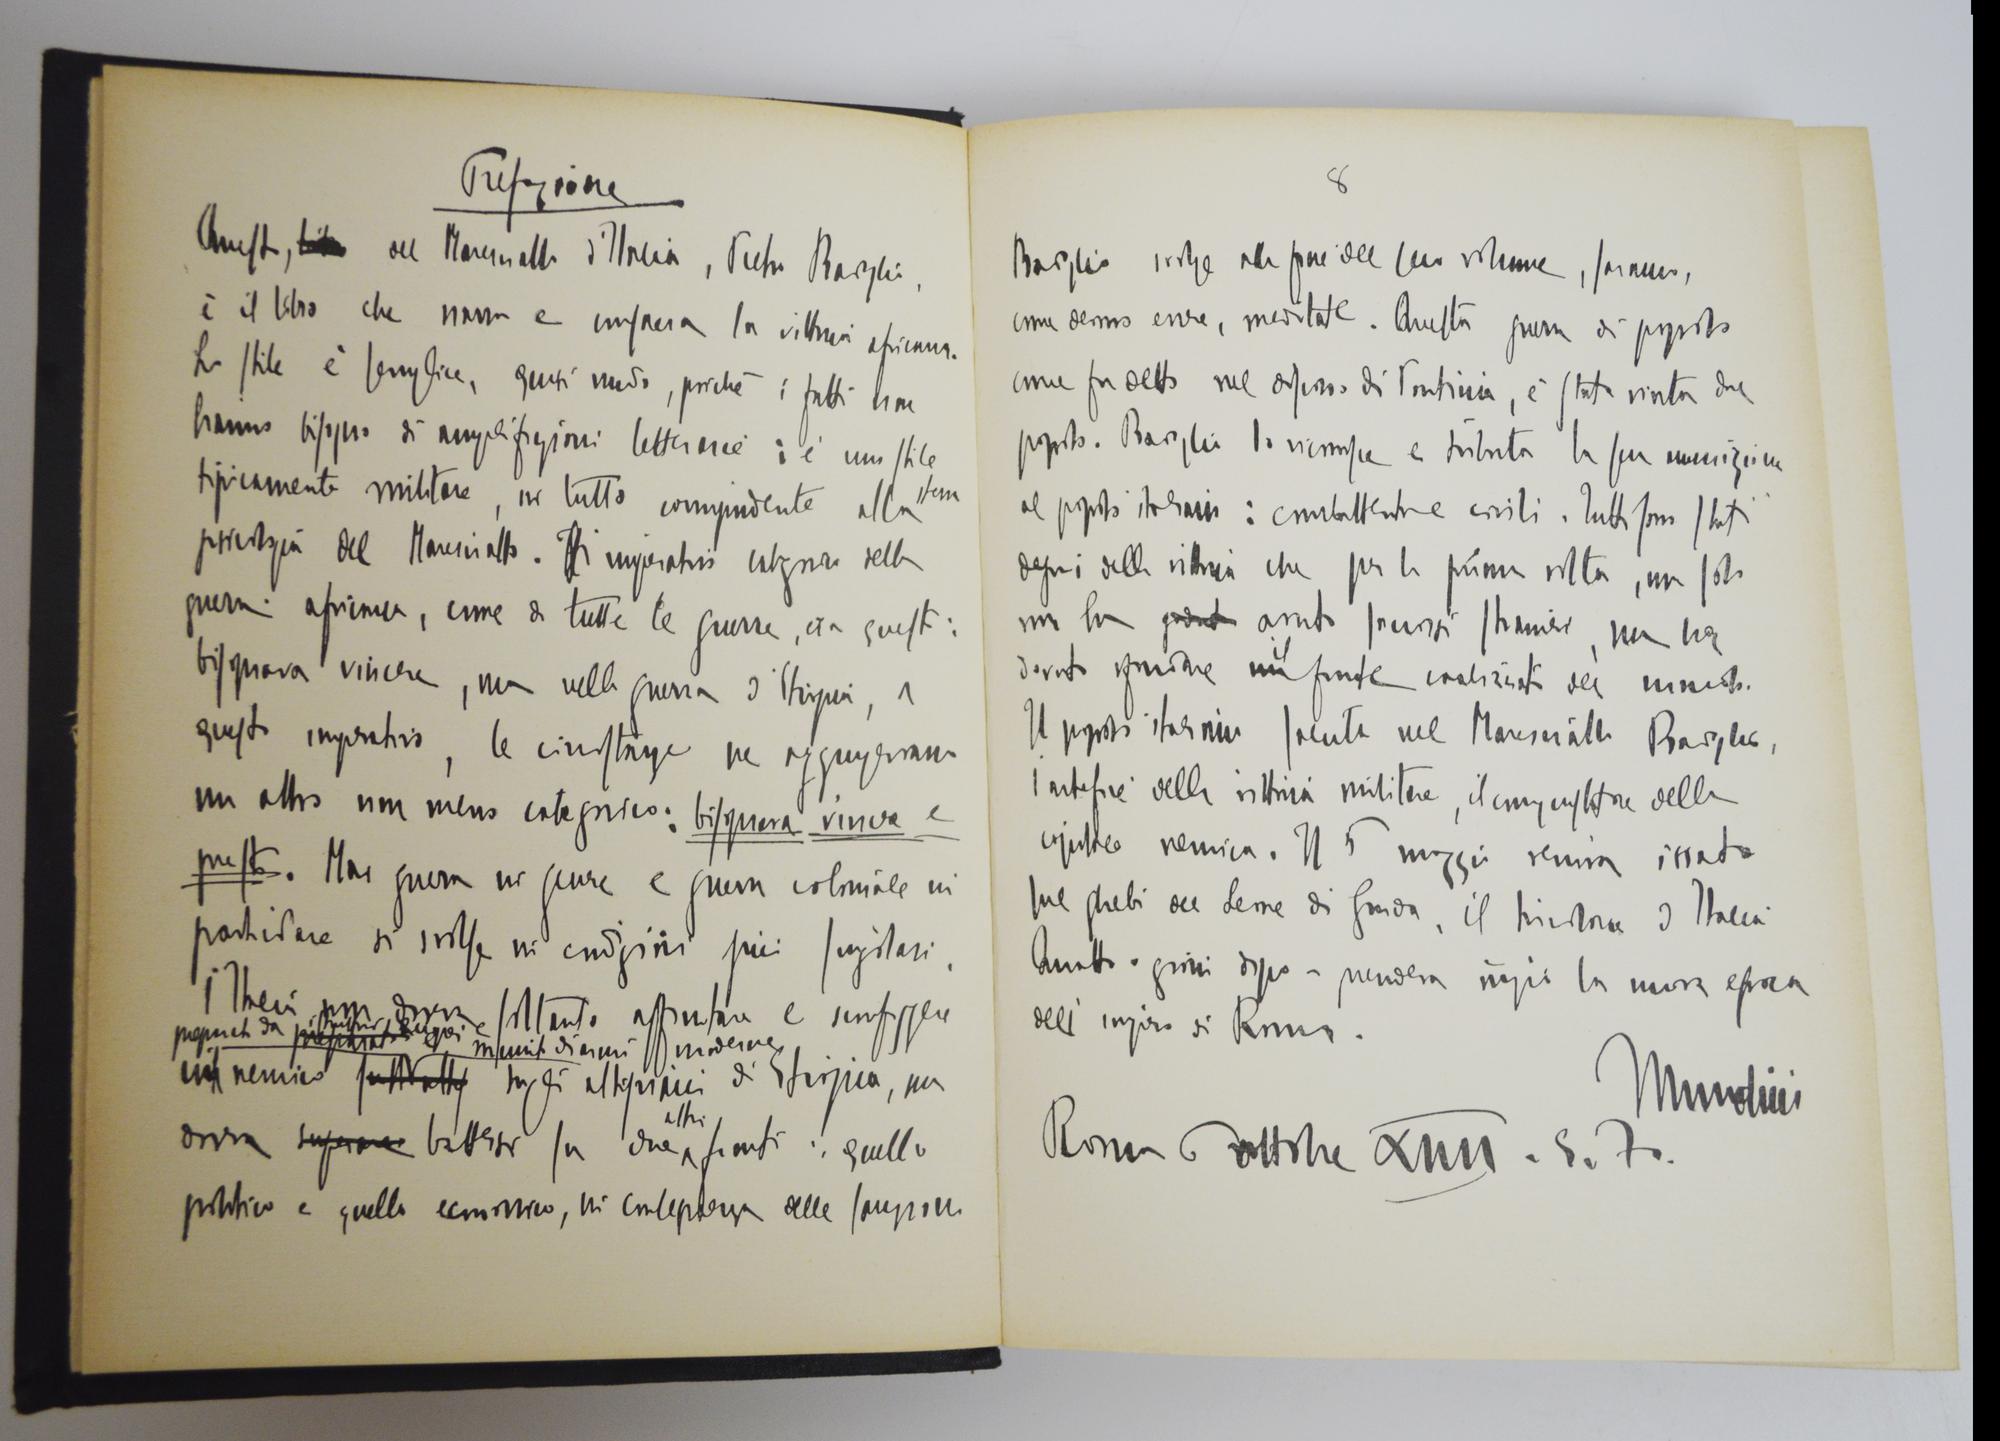 Prefazione
Questo, libro del Maresciallo d'Italia, Pietro Badoglio,
è il libro che narra e consacra la vittoria africana.
Lo stile è semplice, quasi nudo, poiché i fatti non
hanno bisogno di amplificazioni letterarie: è uno stile
tipicamente militare, in tutto corrispondente alla stessa
psicologia del Maresciallo. Gli imperativi categorici della
guerra africana, come di tutte le guerre, era questo:
bisognava vincere, ma nella guerra d'Etiopia, a
questo imperativo, le circostanze ne aggiungevano
un altro non meno categorico: bisognava vincere e
presto. Mai guerra in genere e guerra coloniale in
particolare si svolse in condizioni più singolari.
l'Italia non doveva soltanto affrontare e sconfiggere
preparati da istruttori europei e muniti di armi moderne
il nemico sugli altipiani di Etiopia, ma
doveva superare battersi su due altri fronti: quello
politico e quello economico, in conseguenza delle sanzioni
8
Badoglio svolge alla fine del suo volume, saranno,
come devono essere, meditate. Questa guerra di popolo
come fu detto nel discorso di Pontinia, è stata vinta dal
popolo. Badoglio lo riconosce e tributa la sua ammirazione
al popolo italiano: combattenti e civili. Tutti sono stati
degni della vittoria che per la prima volta, non solo
non ha avuto soccorsi stranieri, ma ha
dovuto spezzare il fronte coalizzato del mondo.
Il popolo italiano saluta nel Maresciallo Badoglio,
l'artefice della vittoria militare, il conquistatore della
capitale nemica. Il 5 maggio veniva issato
sul ghebì del Leone di Giuda, il tricolore d'Italia
Quattro giorni dopo - prendeva inizio la nuova epoca
dell'impero di Roma.
Mussolini
Roma 6 ottobre XIIII. E. F.